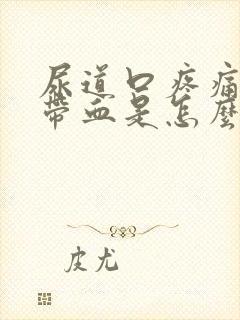 尿道口疼痛
帶血是怎麼
皮尤